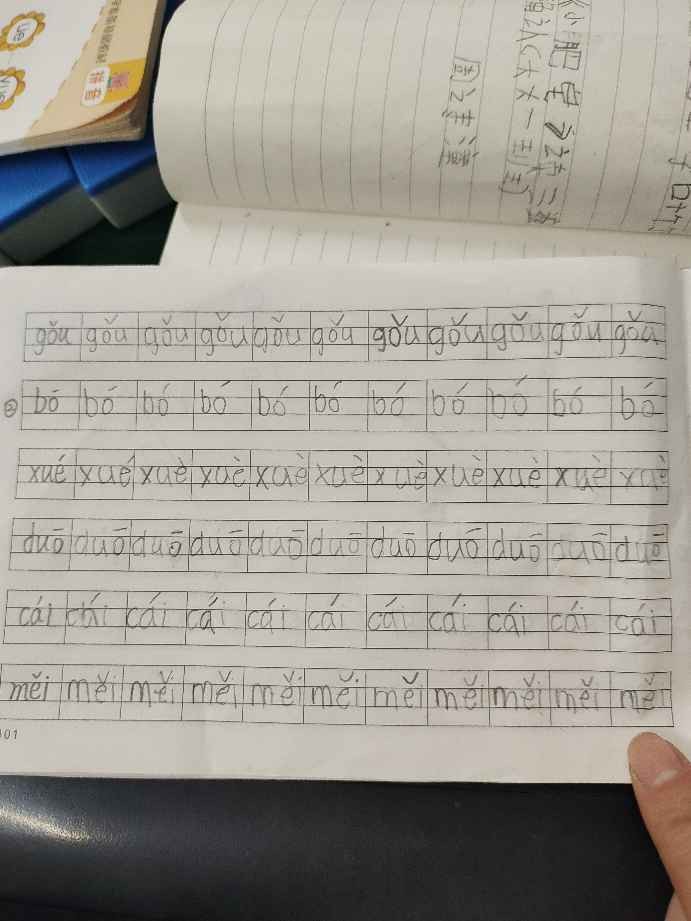 拼音
gǒu gǒu gǒu gǒu gǒu gǒu gǒu gǒu gǒu gǒu gǒu
② bō bó bó bó bó bó bó bó bó bó bó
xué xué xuè xuè xuè xuè xuè xuè xuè xuè xuè
duō duō duō duō duō duō duō duō duō duō duō
cái cái cái cái cái cái cái cái cái cái cái
měi měi měi měi měi měi měi měi měi měi měi